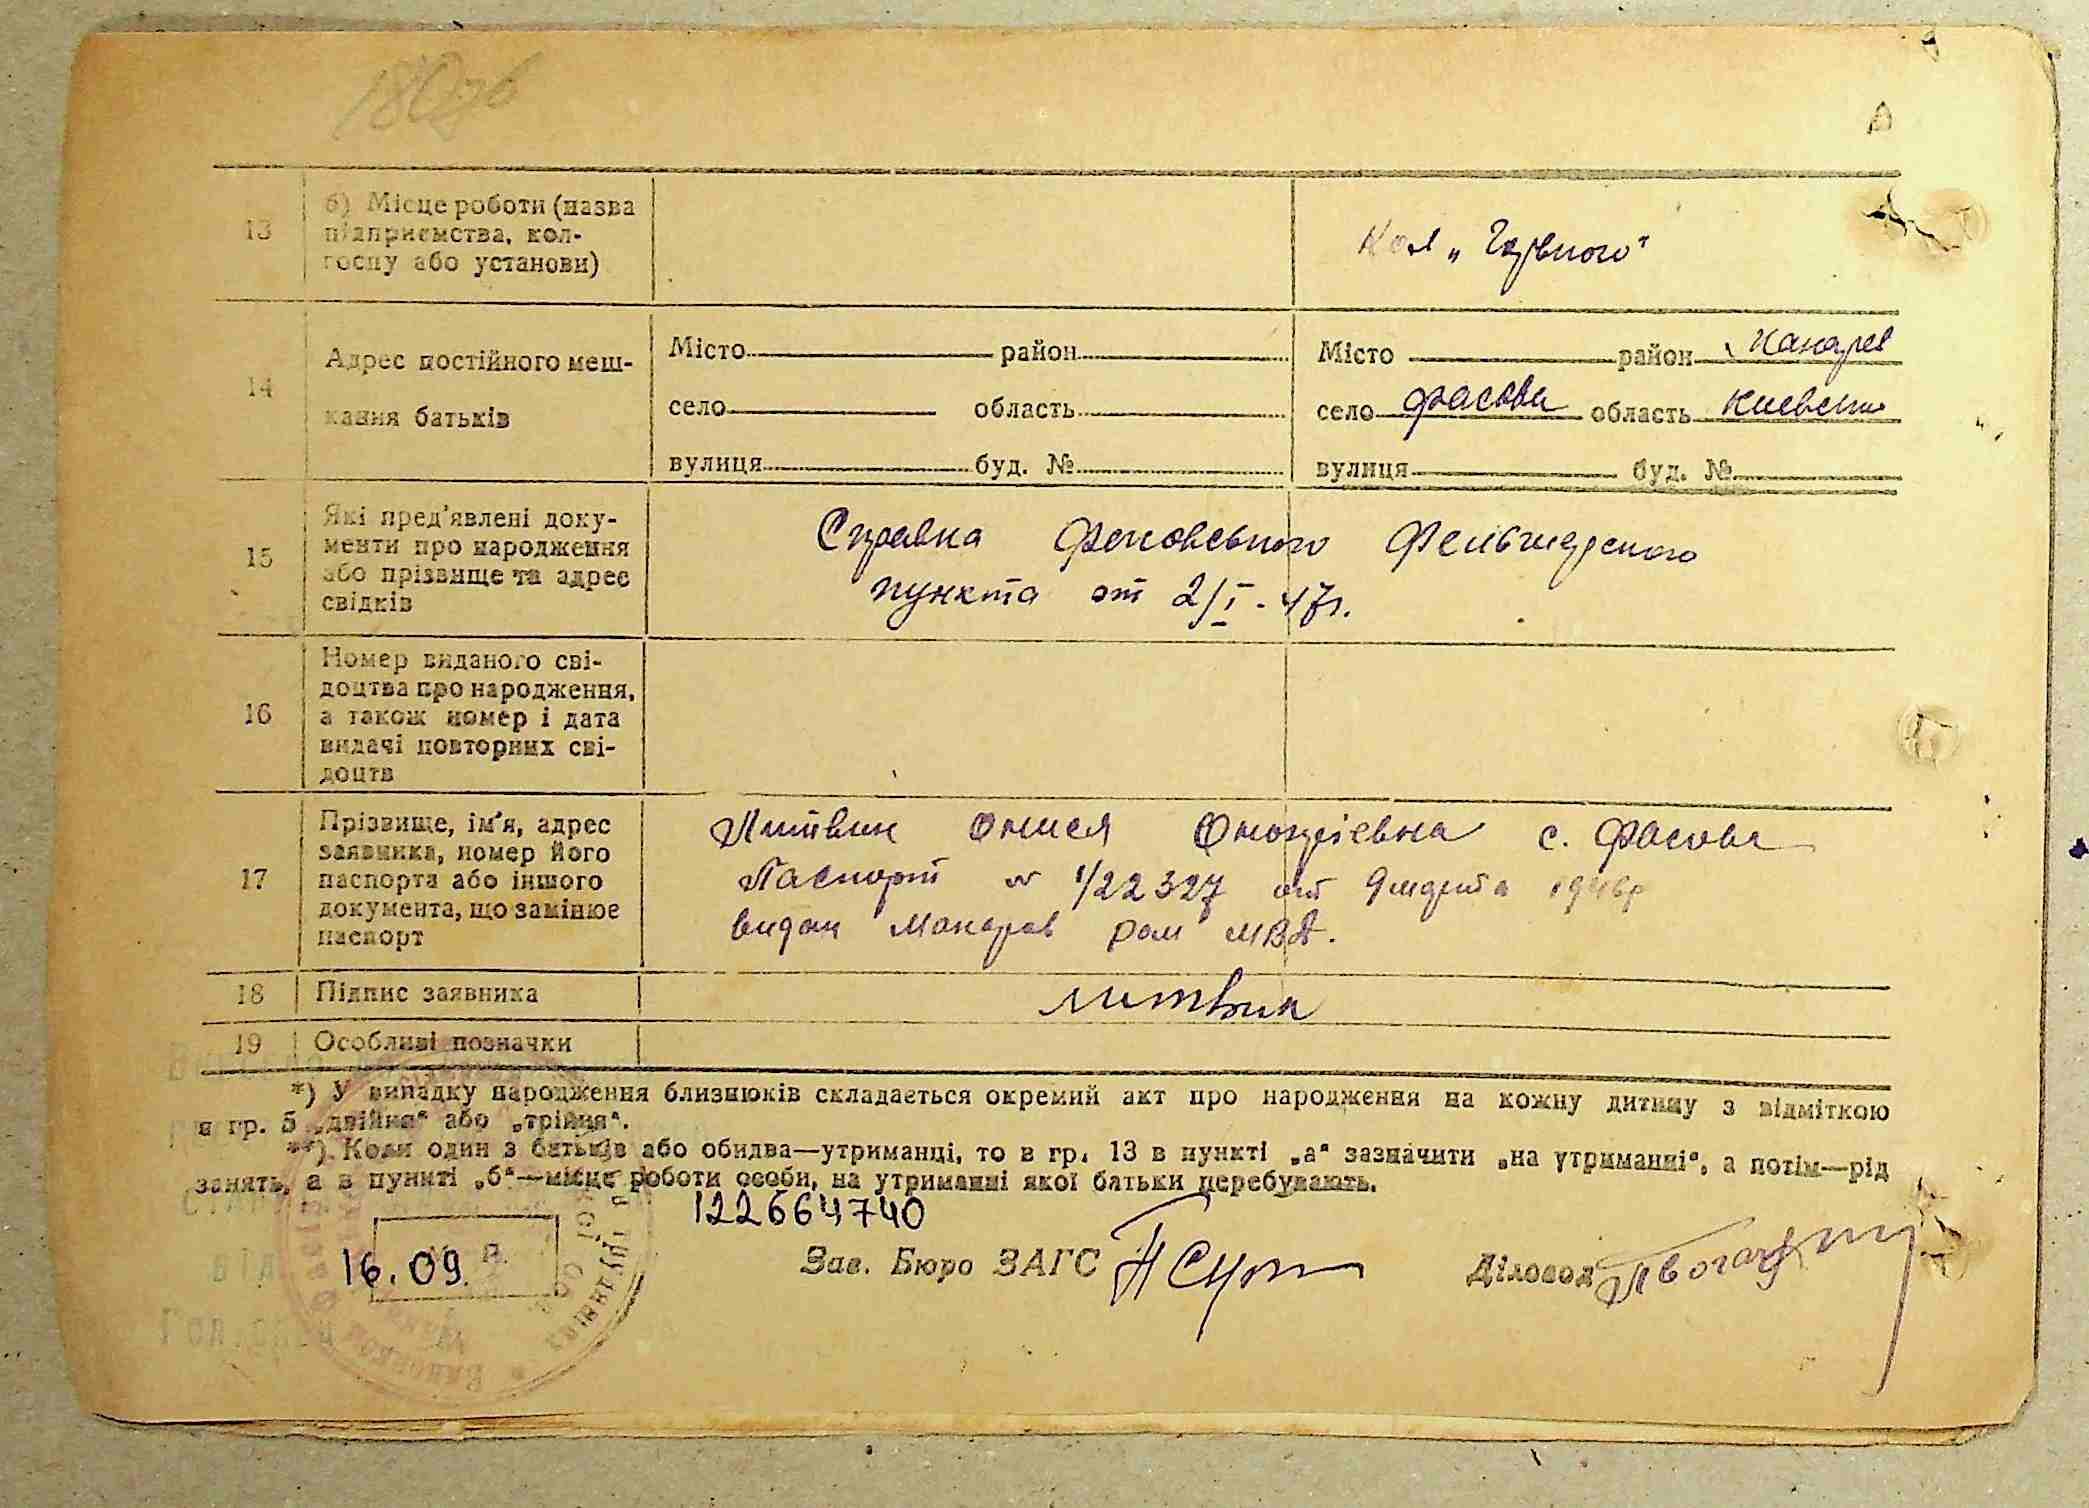 13
б) Місце роботи (назва
підприємства, кол-
госпу або установи)
Кол „
14
Адрес постійного меш-
кання батьків
Місто район
село область
вулиця буд. №
Місто район Макарев
село Фасова область Киевск
вулиця буд. №
15
Які пред'явлені доку-
менти про народження
або прізвище та адрес
свідків
Справка Фасовського Фельшерского
пункта от 2/I-47г.
16
Номер виданого сві-
доцтва про народження,
а також номер і дата
видачі повторних сві-
доцтв
17
Прізвище, ім'я, адрес
заявника, номер його
паспорта або іншого
документа, що замінює
паспорт
Литвин с. Фасова
Паспорт № 122327 от 9 марта 1946р
видан Макаров МВД.
18
Підпис заявника
литвин
19
Особливі позначки
*) У випадку народження близнюків складається окремий акт про народження на кожну дитину з відміткою
в гр. 5 „двійня“ або „трійня“.
**) Коли один з батьків або обидва—утриманці, то в гр. 13 в пункті „а“ зазначити „на утриманні“, а потім—рід
занять, а в пункті „б“—місце роботи особи, на утриманні якої батьки перебувають.
1226647740
16.09.
Зав. Бюро ЗАГС
Діловод